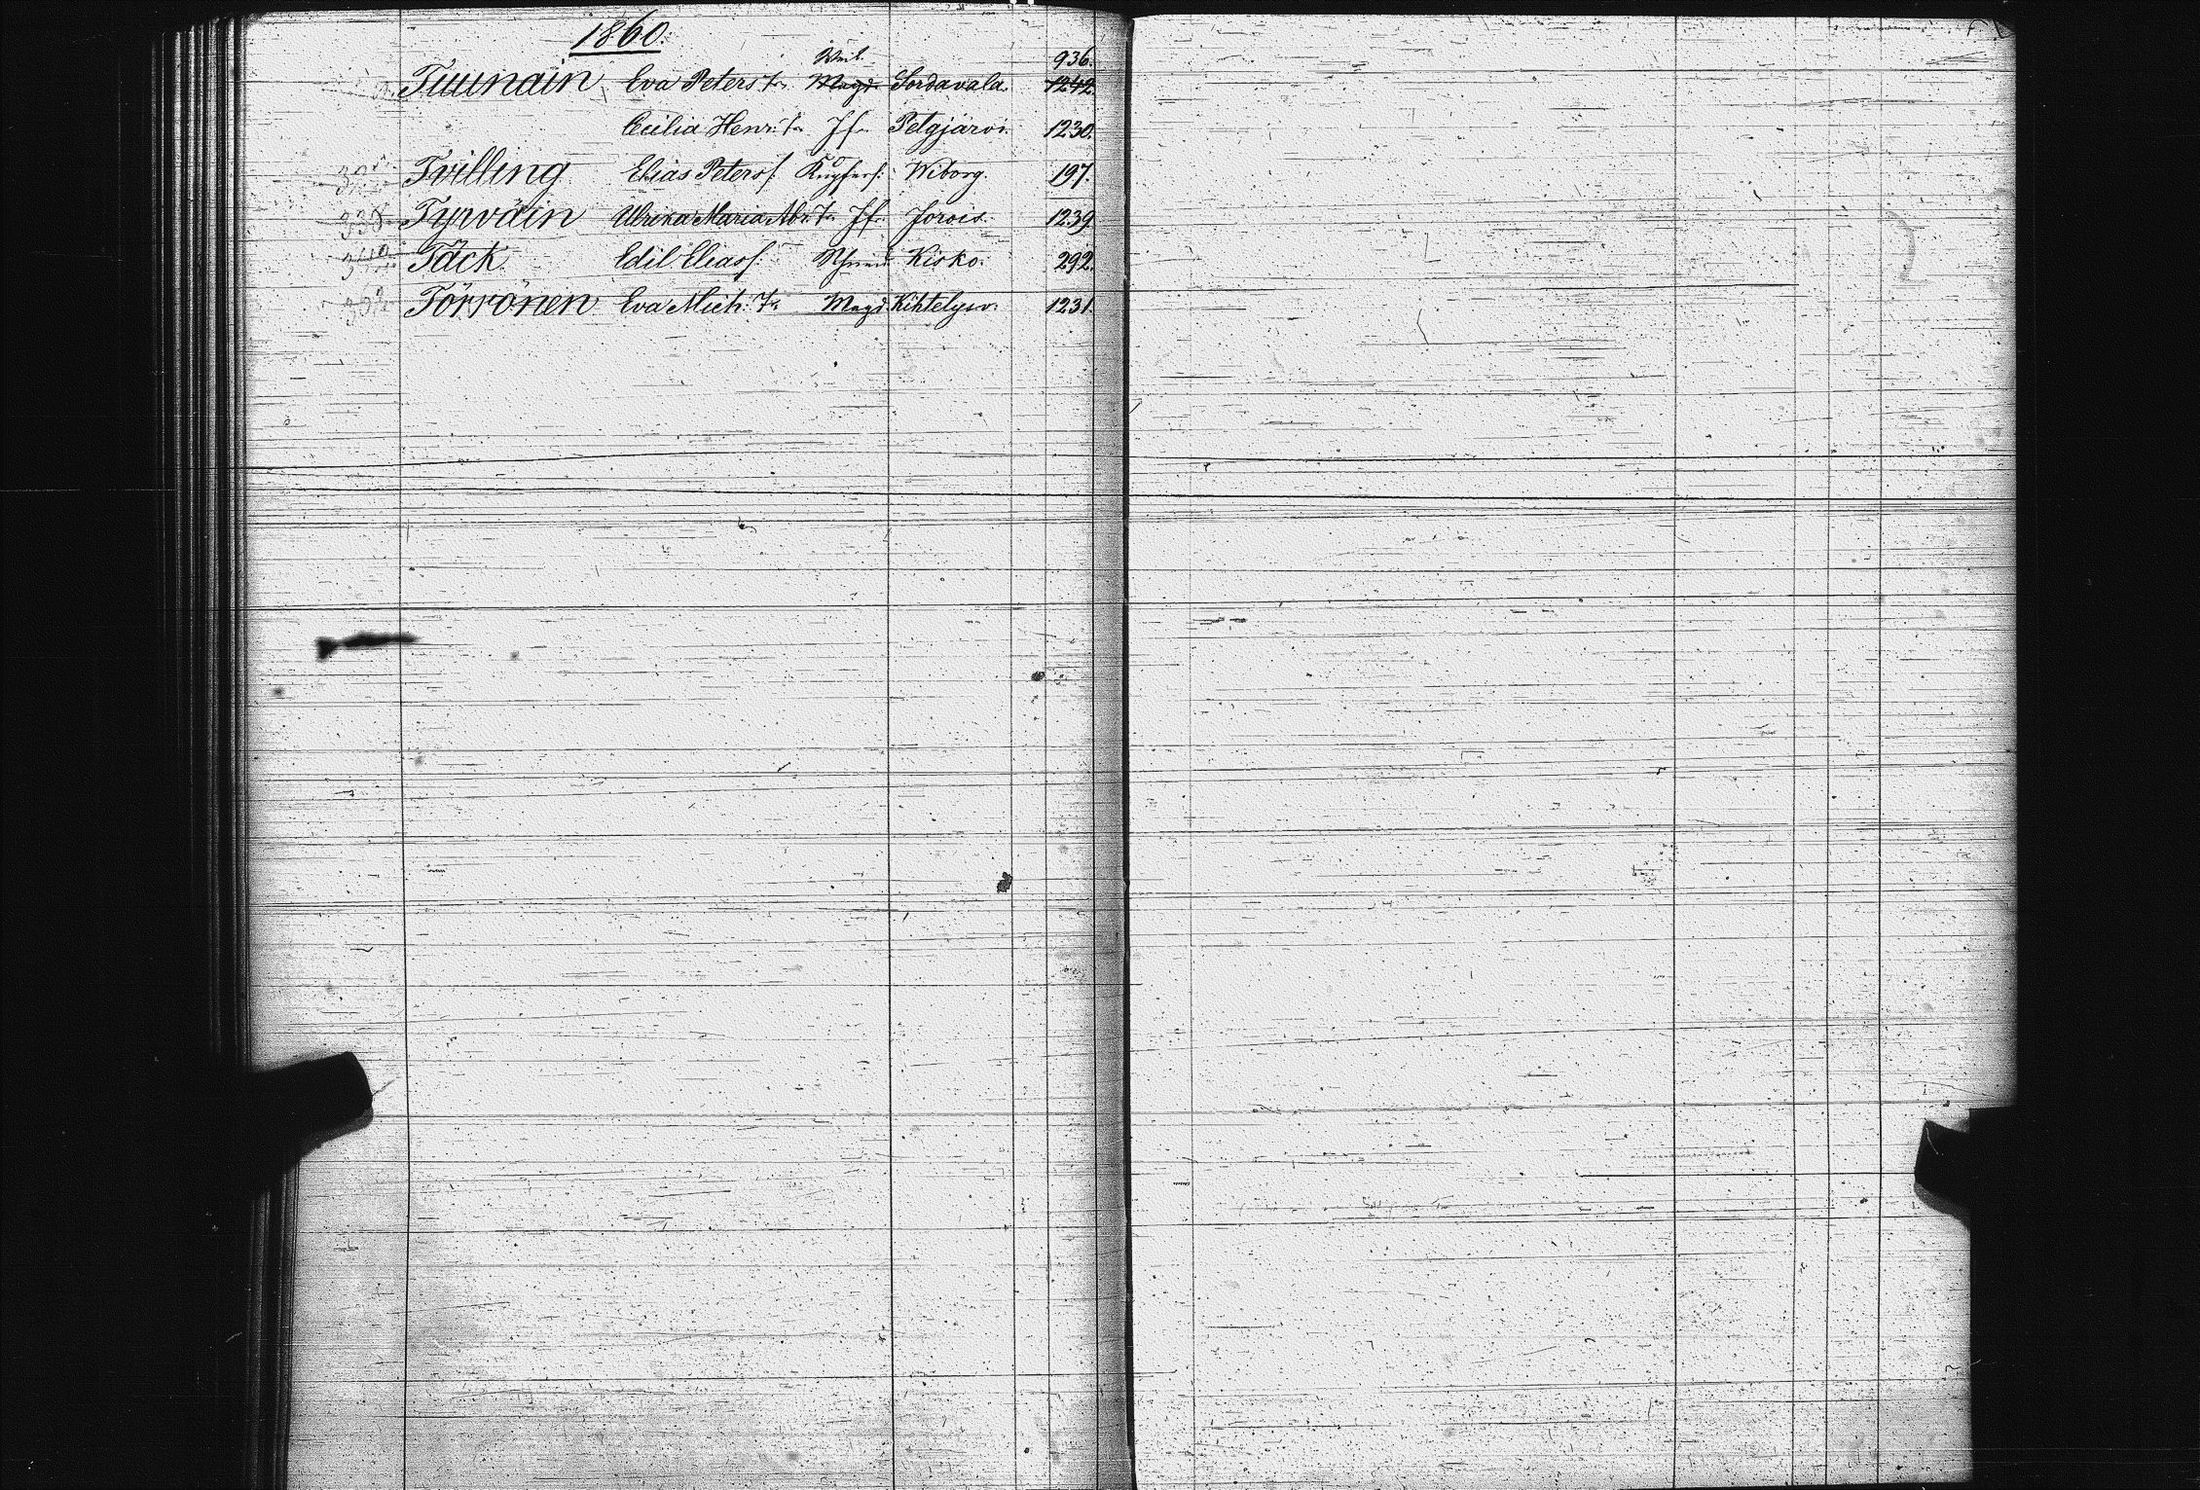 1860.
936.
Tuunain Eva Petersdr. Magd. Sordavala. 1242
Cecilia Henr. dr. Jf. Petgjärvi. 1230.
Tvilling Elias Peterss. Wiborg. 197.
338 Tyrväin Ulrika Maria Abr. dr. Jf. Jorois. 1239
340 Täck Edil Eliass. Kisko. 292.
Törrönen Eva Mich. dr. Magd. Kihtelysv. 1231.